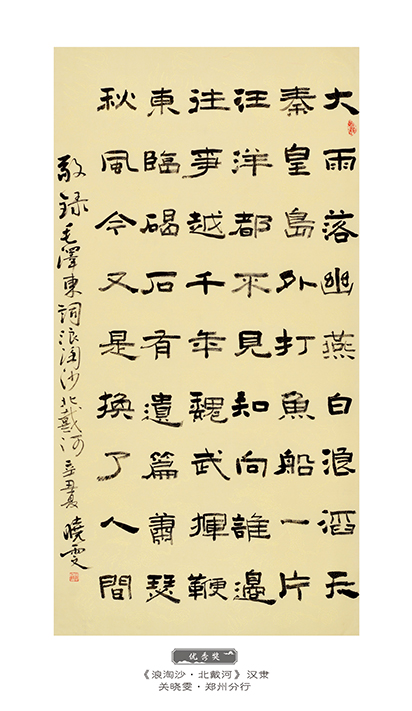 大雨落幽燕白浪滔天
秦皇島外打魚船一片
汪洋都不見知向誰邊
往事越千年魏武揮鞭
東臨碣石有遺篇蕭瑟
秋風今又是換了人間
敬録毛澤東詞浪淘沙北戴河辛丑夏曉雯
优秀奖
《浪淘沙·北戴河》汉隶
关晓雯·郑州分行